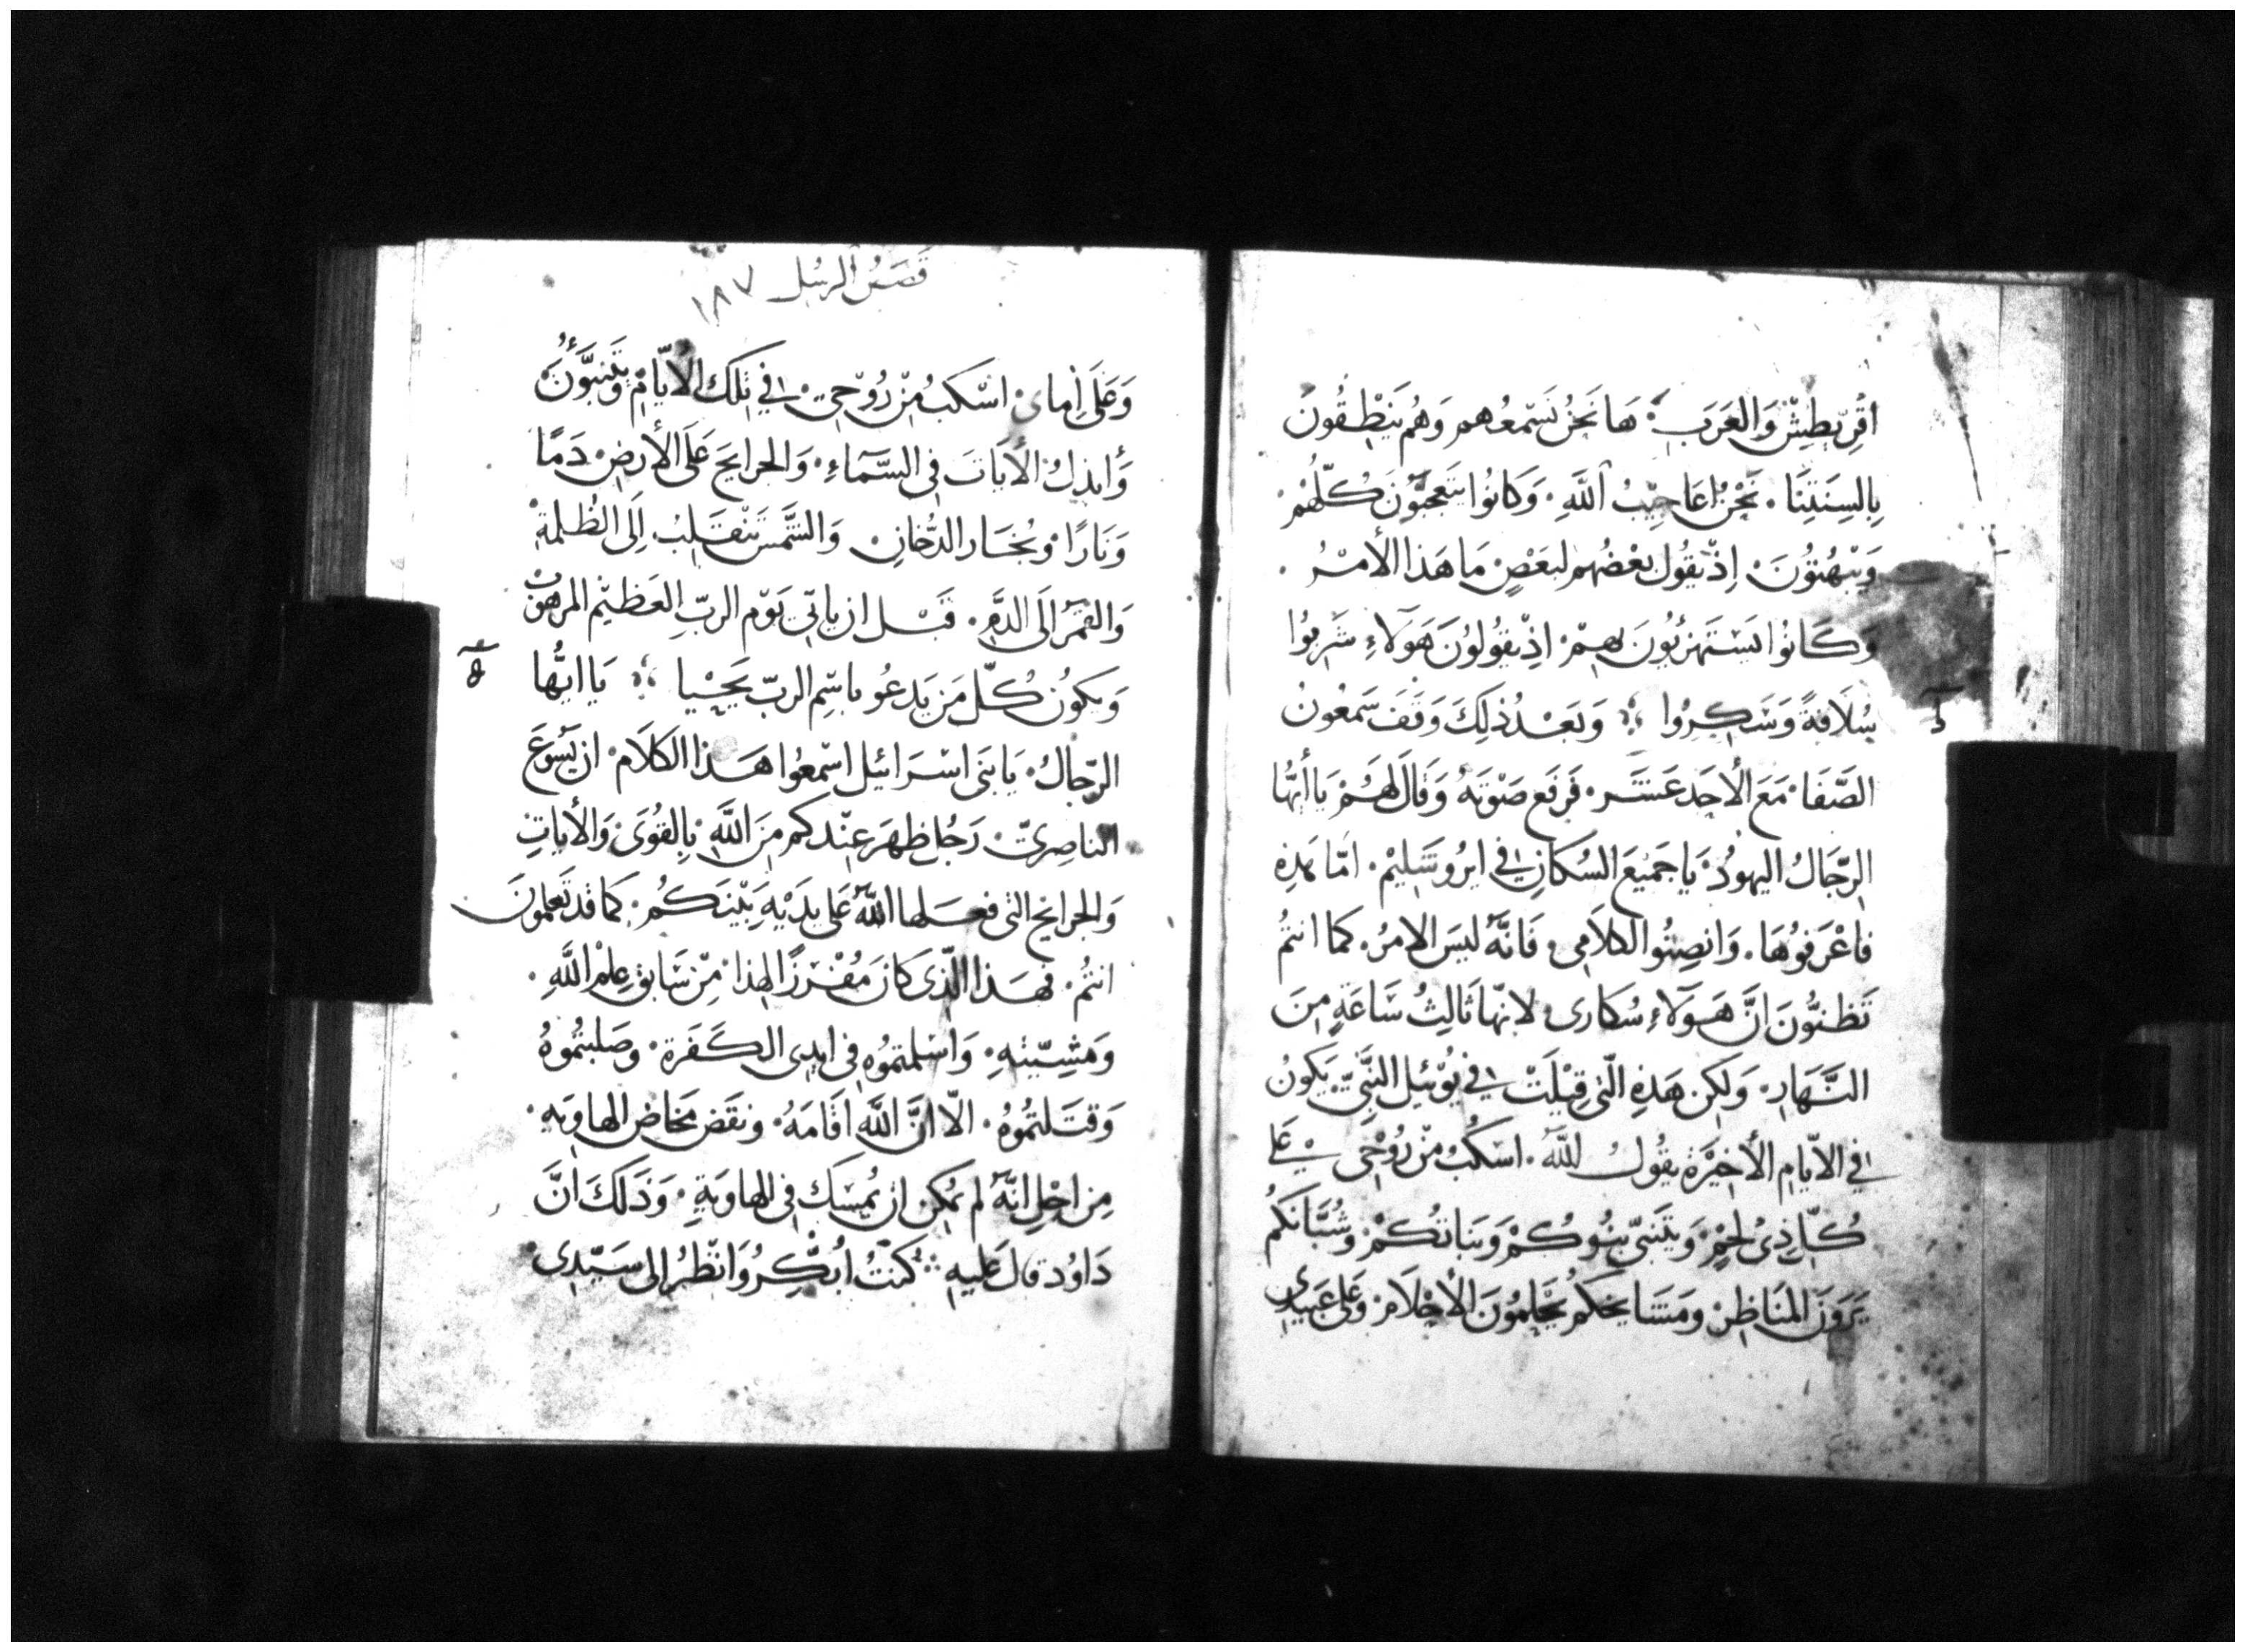 اقْرِيطِيْشْ وَالعَرَبِ. هَا نَحْنُ نَسْمَعُهم وَهُم يَنْطِقُونَ
بِالسِنَتِنَا. نَحْنُ اعَاجِيْبُ اللَّهِ. وَكَانُوا يَتَعَجَّبُوْنَ كُلّهُمْ.
وَيَبْهُتُوْنَ. اِذْ يَقُوْل بَعْضُهُم لبَعْضٍ مَا هَذا الأمْرُ.
وَكَانُوا يَسْتَهزِئُونَ بِهِمْ. اِذْ يَقُولُوْنَ هَوَلاءِ شَرِبُوا
سُلَافَةً وَسَكِرُوا ؞ وَبَعْدُ ذلِكَ وَقَفَ سَمعُونُ
الصَّفَا. مَعَ الأَحَدعَشَر. فَرَفَع صَوْتَهُ وَقَالَ لَهُمْ يَا أيُّهَا
الرّجَالُ اليهودُ. يَا جَمِيْعَ السُكانِ في ايرُوشَلِيْم. امّا هَذِهِ
فَاعْرَفُوْهَا. وَانصِتُوا لكلَامِي. فَانَّهُ ليسَ الامرُ. كما انتُم
تَظنُّونَ انَّ هَوَلَاءِ سُكَارى. لانّها ثَالِثُ سَاعَةٍ مِنَ
النَّهَارِ. وَلكِن هَذِهِ الّتي قِيْلَتْ في يُوْئيل النَّبِيّ. يَكونُ
في الايّامِ الأخِيْرَة يقُولُ اللّهُ. اسْكُبُ مِنْ رُوْحِي عَلى
كُلّ ذِيْ لحْمٍ. وَيَتَنَبّي بَنُوكُمْ وَبَنَاتُكُمْ. وَشُبَّانَكُم
يَرَوْنَ المنَاظِرْ. وَمَشَايخكُم يَحْلمُوْنَ الأحْلَامْ. وَعَلى عَبِيْدِي
قَصَصُ الرسُل ١٨٧
وَعَلَى اِماى. اسْكبُ مِنْ رُوْحِي. في تِلكَ الأيّامِ وَيَتَنبَّؤُنَ
وَأبذلُ الأيَاتَ في السَّمَاءِ. وَالجرايحَ عَلَى الأرضِ. دَمًا
وَنَارًا. وَبُخَار الدُّخانِ. وَالشَّمسَ تَنْقَلِبُ اِلَى الظُلمةْ
وَالقمَرُ اِلَى الدَّمِ. قَبْل ان ياتي يَوْم الربِّ العَظِيْم المرهوبْ
وَيكُوْن كُلّ مَن يَدعُو باسِمِ الربّ يَحْيِيا ؞ يَا ايُّها
الرّجالُ. يَا بَنى اسْرَائيل اسْمعُوا هَذا الكلَام. ان يَسُوعَ
الناصِريّ. رَجُل ظهَرَ عِنْدكم مِنَ اللَّهِ. بِالقوَى وَالأياتِ
وَالجرايح التى فعَلها اللَّهُ عَلى يدَيْهِ بَيْنَكُم. كمَا قَد تَعلمُونَ
انتُم. فهَذا الّذي كَانَ مُفْرَزًا لهذا. مِنْ سَابقِ عِلْم اللَّهِ.
وَمَشِيّتِهِ. وَاسْلمتمُوْهُ في ايدِى الكَفَرَة. وَصَلبتُمُوهُ
وَقتَلتمُوهُ. الّا انَّ اللَّهَ اقَامَهُ. ونقَض مَخاض الهاوِيَهِ.
مِن اجْلِ انَّهُ لم يمْكِن انْ يُمسَك في الهاوِيَةِ. وَذَلكَ انَّ
دَاوُد قال عَليهِ ؞ كنتُ ابُكِّرُ وَانْظرُ الى سَيّدِى